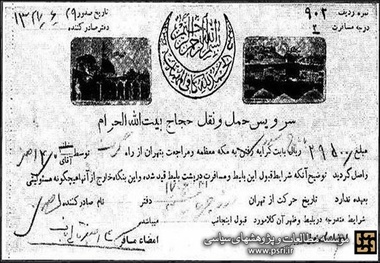 نمره ردیف ۹۰۲
تاریخ صدور ۲۹ر۶ر۱۳۲۷
درجه مسافرت ۲
دفتر صادر کننده
سرویس حمل و نقل حجاج بیت الله الحرام
مبلغ ۲۹۵۰۰ ریال بابت کرایه رفتن به مکه معظمه و مراجعت بتهران از راه توسط آقای
واصل گردید توضیح آنکه شرایط قبول این بلیط و مسافرت در پشت بلیط قید شده و این بنگاه خارج از آنها هیچگونه مسئولیتی
بعهده ندارد تاریخ حرکت از تهران دفتر نام صادر کننده
شرایط متدرجه در بلیط و ظهر آن کلا مورد قبول اینجانب میباشد
امضاء مسافر
مؤسسه مطالعات و پژوهشهای سیاسی
www.psri.ir